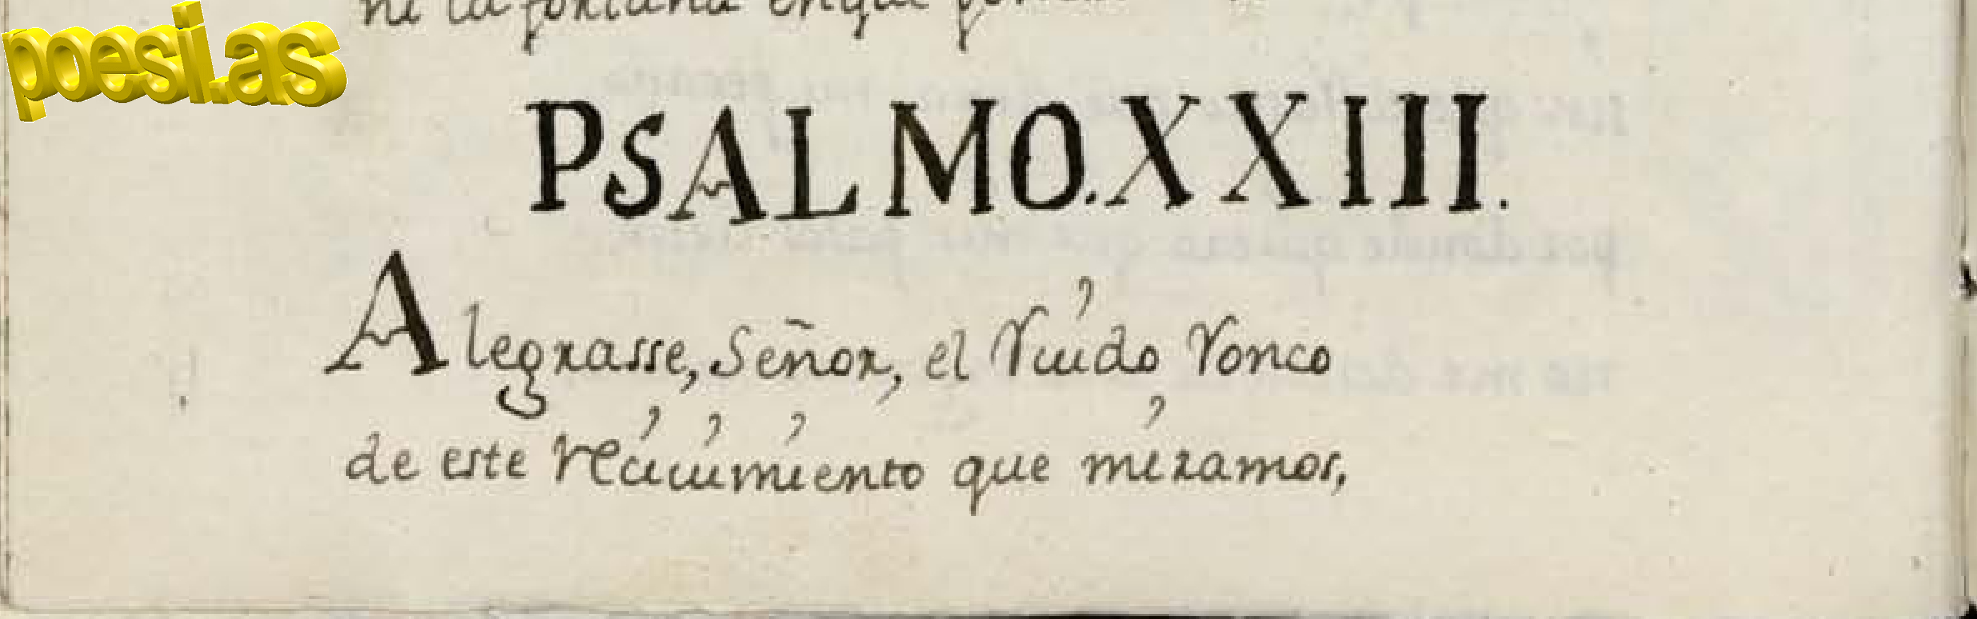 poesi.as
ni la fontana enque
PSALMO.XXIII.
Alegrasse, Señor, el Ruido Ronco
de este Reciuimiento que miramos,